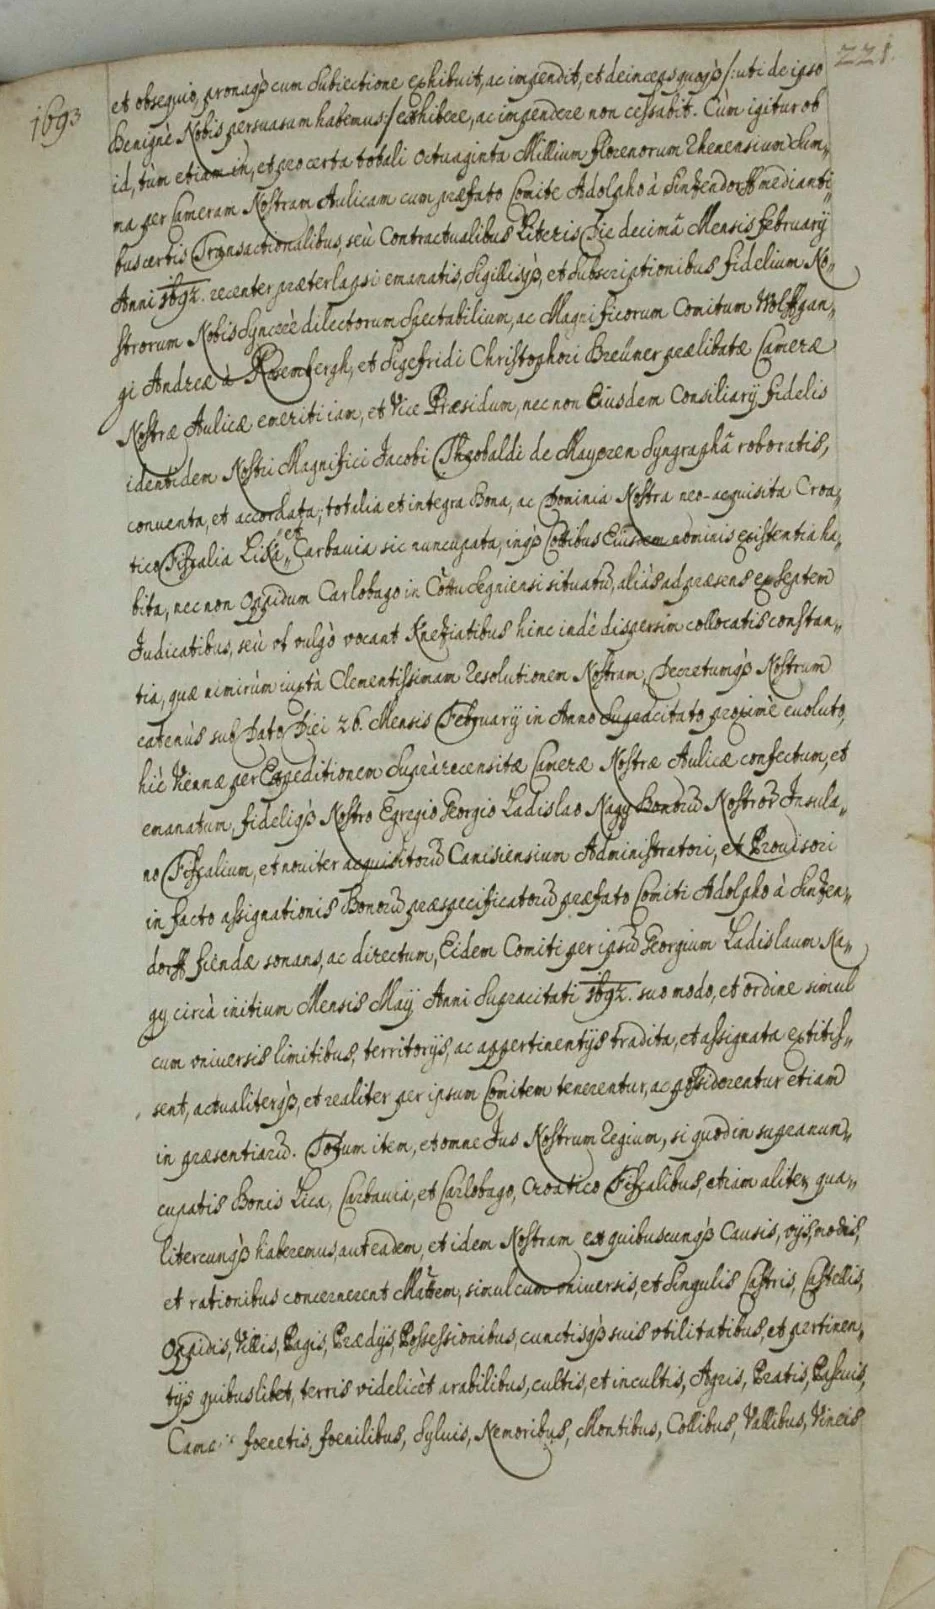 221.
1693
et obsequio, pronaq́ʒ cum subiectione exhibuit, ac impendit, et deinceps quoq́ʒ /: uti de ipso
Benignè Nobis persuasum habemus :/ exhibere, ac impendere non cessabit. Cùm igitur ob
id, tùm etiam in, et pro certa totali octuaginta Millium florenorum Rhenensium Sum„
ma per Cameram Nostram Aulicam cum præfato Comite Adolpho à Sinzendorff medianti„
bus certis Transactionalibus, seù Contractualibus Literis Die decimâ Mensis February
Anni 1692. recenter præterlapsi emanatis, Sigillisq́ʒ, et Subscriptionibus fidelium No„
strorum Nobis Syncerè dilectorum Spectabilium, ac Magnificorum Comitum Wolffgan„
gi Andreæ à Rosembergh, et Sigefridi Christophori Breüner prælibatæ Cameræ
Nostræ Aulicæ emeriti iam, et Vice Præsidum, nec non Eiusdem Consiliarÿ fidelis
identidem Nostri Magnifici Jacobi Theobaldi de Mayeren Syngraphâ roboratis,
conventa, et accordata; totalia et integra Bona, ac Dominia Nostra neo-acquisita Croa„
tico Fiscalia Lika „et Carbavia sic nuncupata, inq́ʒ Cottibus Eiusdem nominis existentia ha„
bita, nec non Oppidum Carlobago in Cottu Segniensi situatū, aliàs ad præsens ex Septem
Judicatibus, seù ut vulgò vocant Kneziatibus hinc indè dispersim collocatis constan„
tia, quæ nimirùm iuxtà Clementissimam Resolutionem Nostram, Decretumq́ʒ Nostrum
eatenùs sub Dato Diei 26. Mensis February in Anno Supracitato proximè evoluto,
hic Viennæ per Expeditionem Suprarecensitæ Cameræ Nostræ Aulicæ confectum, et
emanatum, fideliq́ʒ Nostro Egregio Georgio Ladislao Nagy Bonorū Nostrorū Insula„
no Fiscalium, et noviter acquisitorū Canisiensium Administratori, et Provisori
in facto assignationis Bonorū præspecificatorū præfato Comiti Adolpho à Sinzen„
dorff fiendæ sonans, ac directum, Eidem Comiti per ipsū Georgium Ladislaum Na„
gy circà initium Mensis May Anni Supracitati 1692. suo modo, et ordine simul
cum universis limitibus, territorÿs, ac appertinentÿs tradita, et assignata extitis„
sent, actualiterq́ʒ, et realiter per ipsum Comitem tenerentur, ac possiderentur etiam
in præsentiarū. Totum item, et omne Jus Nostrum Regium, si quod in supranun„
cupatis Bonis Lica, Carbavia, et Carlobago, Croatico Fiscalibus, etiam aliter qua„
litercunq́ʒ haberemus, aut eadem, et idem Nostram ex quibuscunq́ʒ Causis, vÿs, modis,
et rationibus concernerent Mattem, simul cum universis, et Singulis Castris, Castellis,
Oppidis, Villis, Pagis, Prædÿs, Possessionibus, cunctisq́ʒ suis utilitatibus, et pertinen„
tÿs quibuslibet, terris videlicèt arabilibus, cultis, et incultis, Agris, Pratis, Pascuis,
foenetis, foenilibus, Sylvis, Nemoribus, Montibus, Collibus, Vallibus, Vineis